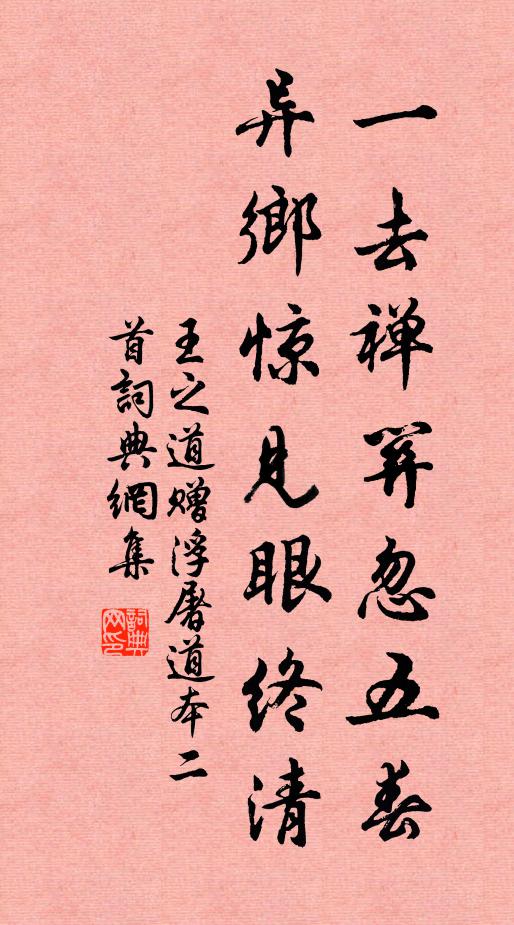 一去禅关忽五春
异鄉惊见眼终清
王之道赠浮屠道本二
首詞典網集
詞典网印